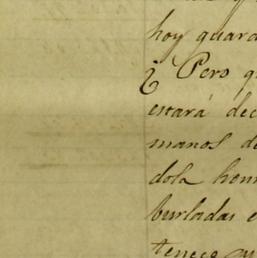 hoy guard
¿Pero q
estará dec
manos de
dola hen
burladas e
tenece